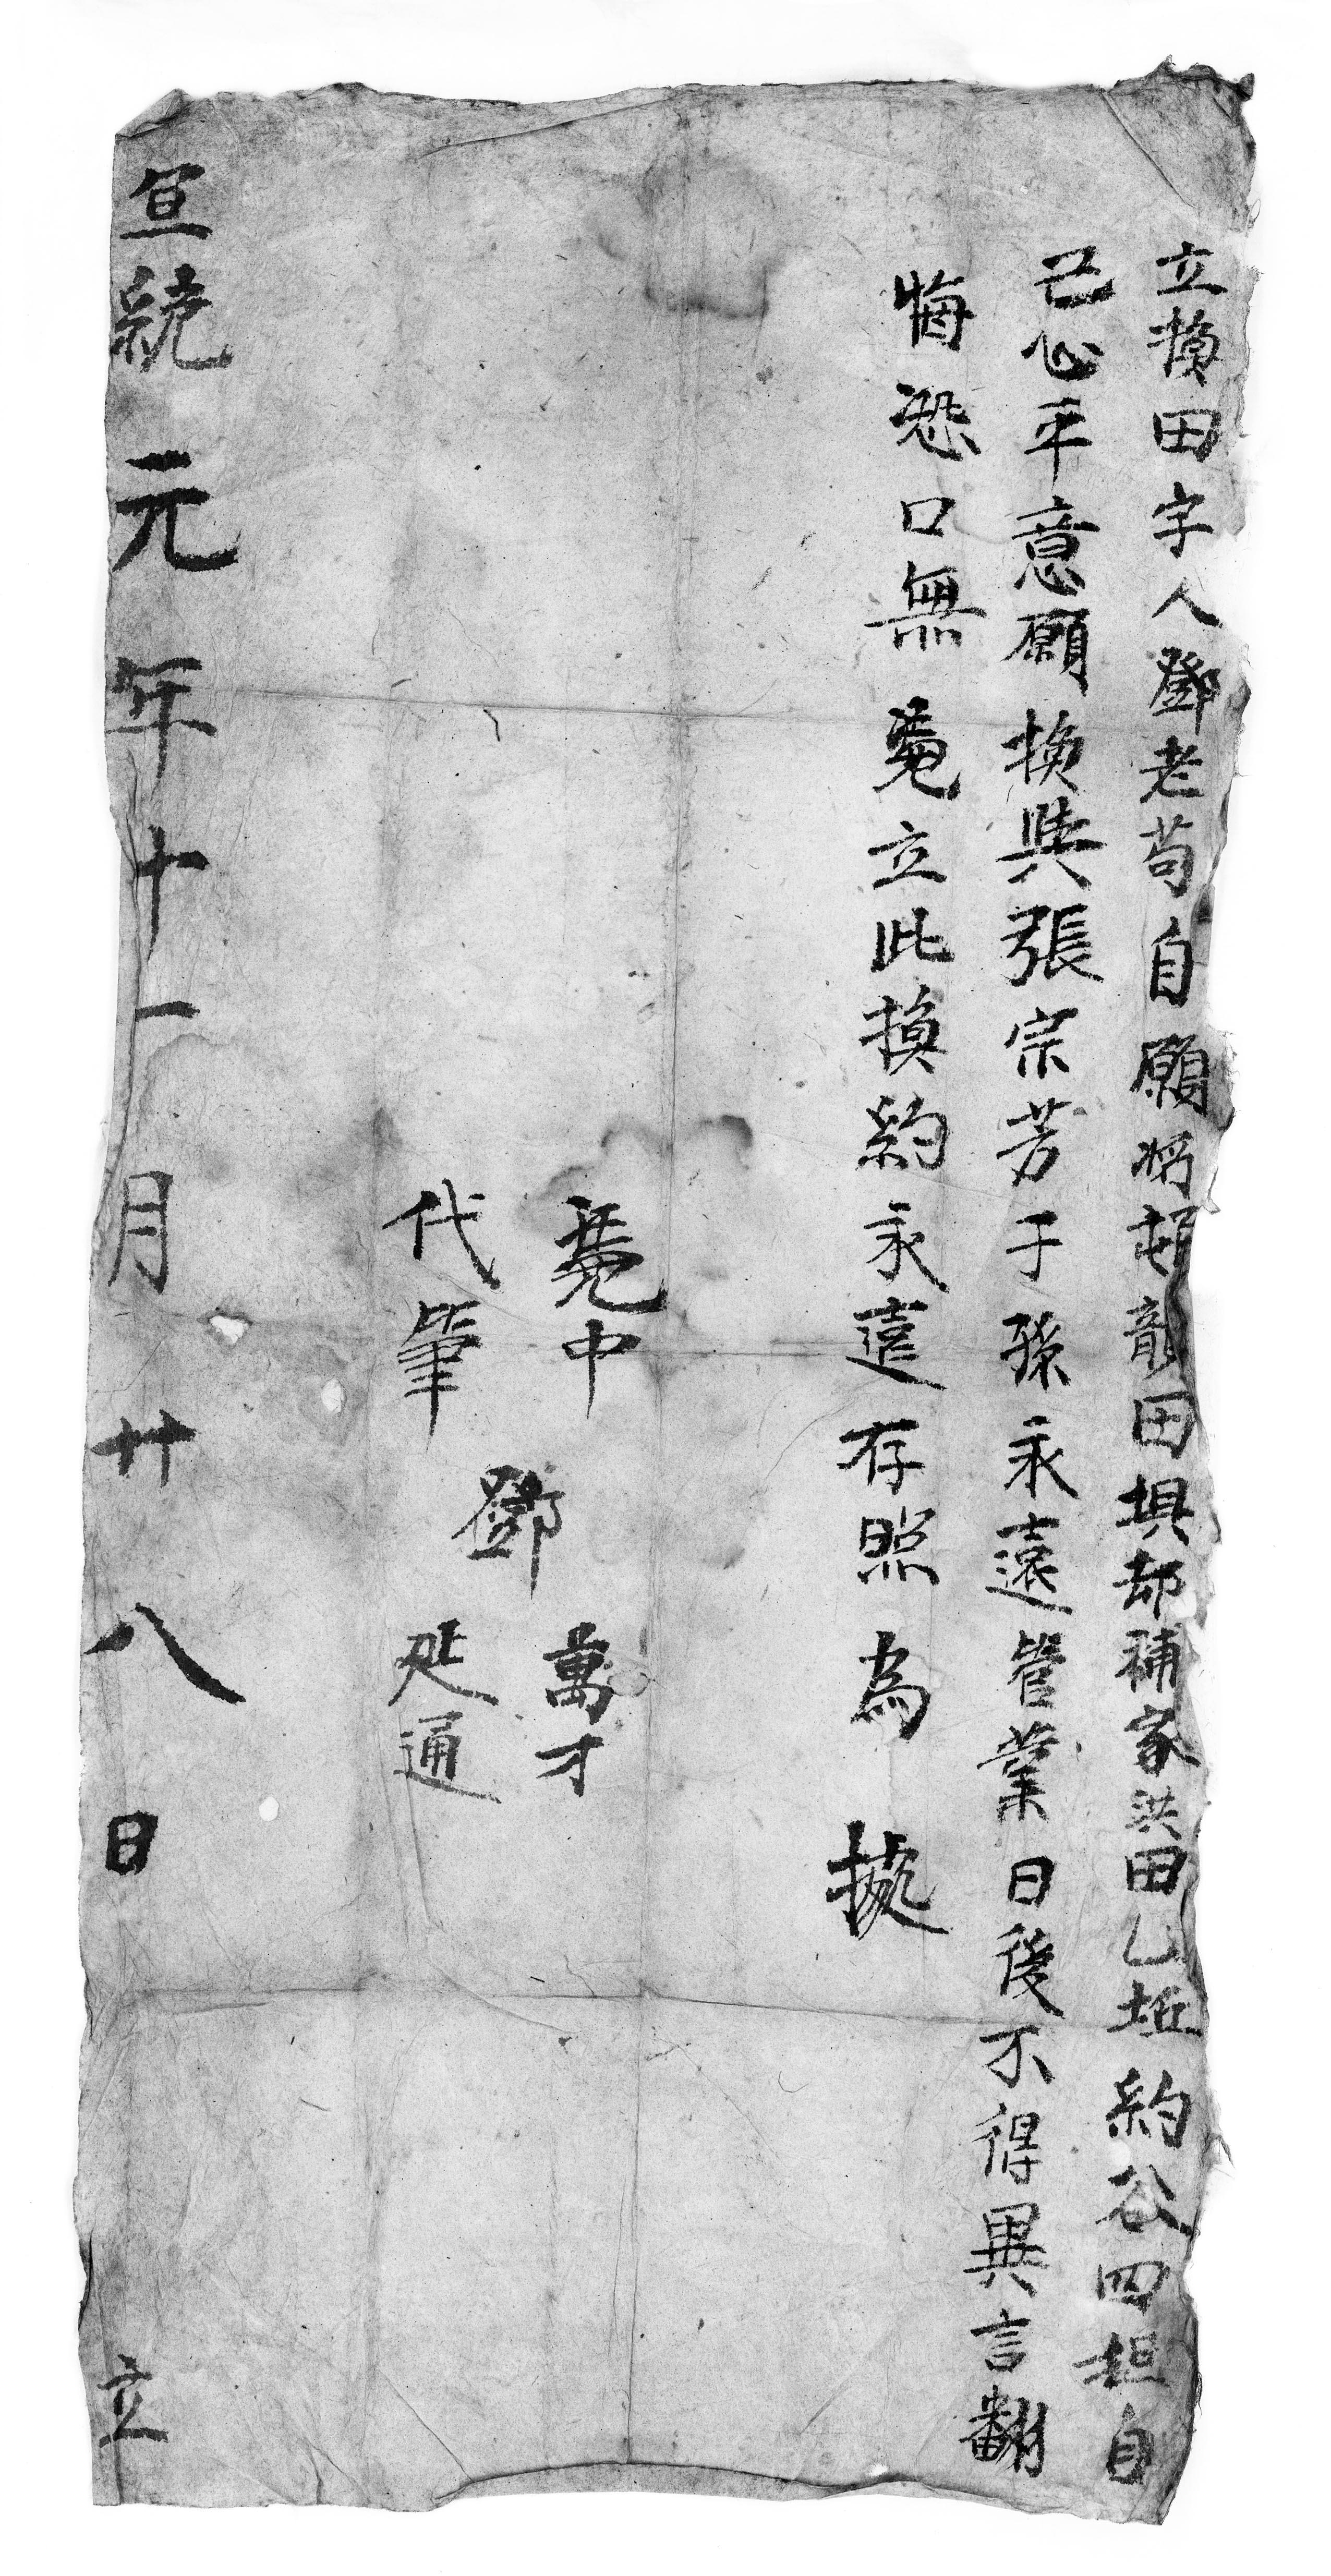 立換田字人鄧老苟自願將龍田埧却補家洪田乚坵約谷四担自
己心平意願換與張宗芳子孫永遠管業日後不得異言翻
悔恐口無凴立此換約永遠存照為據
凴中 萬才
鄧
代筆 延通
宣統元年十一月廿八日立